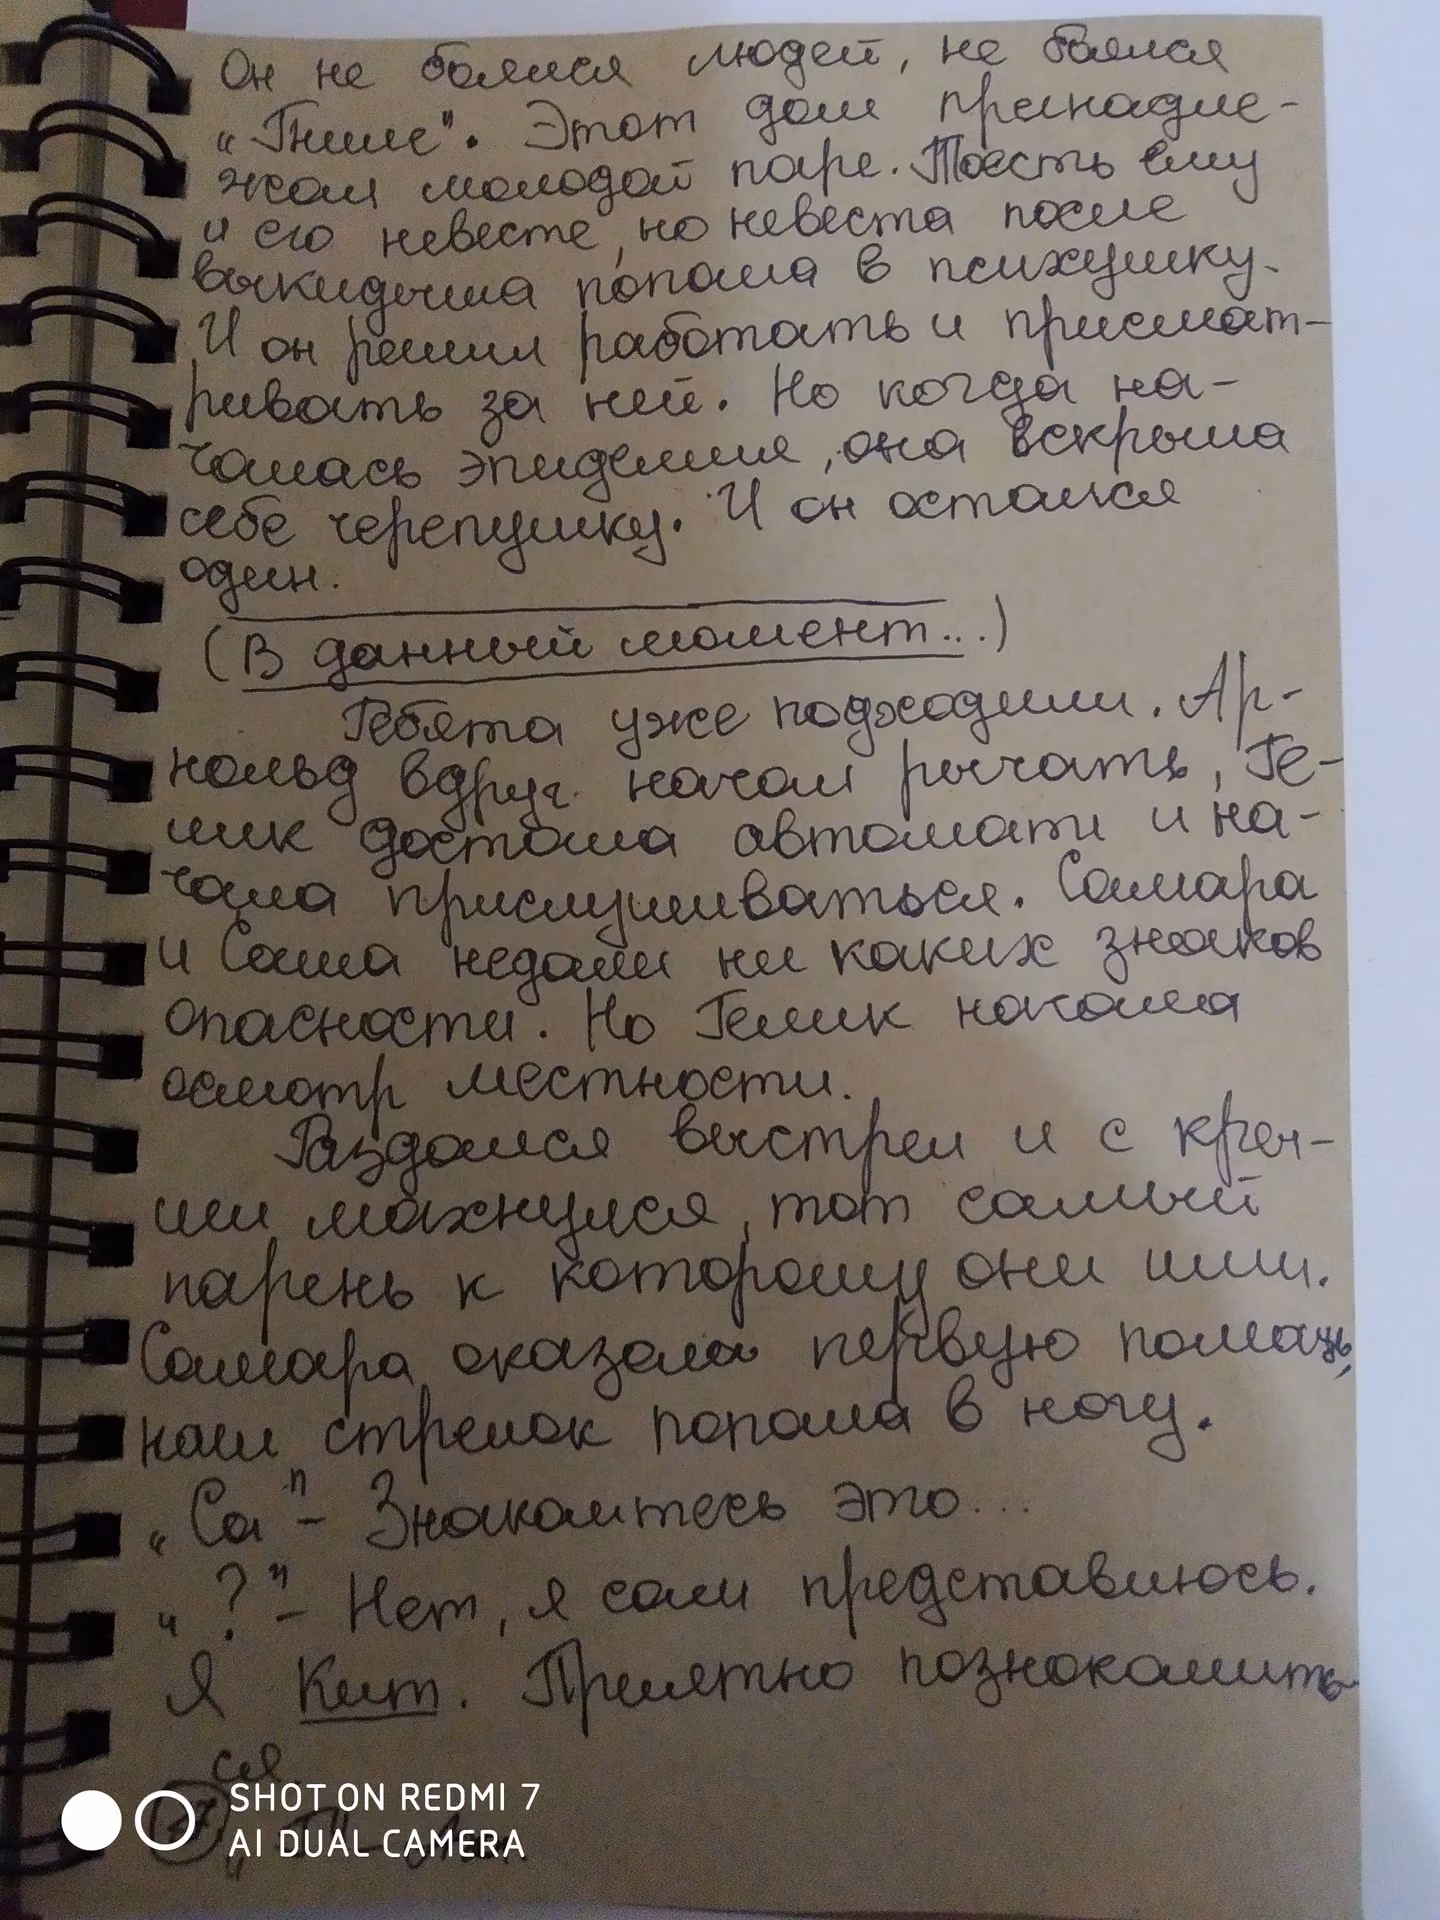 Он не боялся людей, не боялся
„Гнили". Этот дом принадле-
жал молодой паре. Тоесть ему
и его невесте, но невеста после
выкидыша попала в психушку.
И он решил работать и присмат-
ривать за ней. Но когда на-
чалась эпидемия, она вскрыла
себе черепушку. И он остался
один.
(В данный момент...)
Ребята уже подходили. Ар-
нольд вдруг начал рычать, Ге-
лик достала автомати и на-
чала прислушиваться. Самара
и Саша недали ни каких знаков
опасности. Но Гелик начала
осмотр местности.
Раздался выстрел и с кры-
ши махнулся, тот самый
парень к которому они шли.
Самара оказала первую помащь,
наш стрелок попала в ногу.
„Са" - Знакомтесь это...
„?" - Нет, я сам представлюсь.
Я Кит. Приятно познокомить-
ся.
SHOT ON REDMI 7
AI DUAL CAMERA